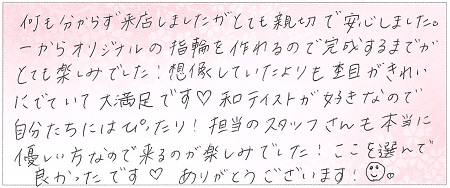 何も分からず来店しましたがとても親切で安心しました。
一からオリジナルの指輪を作れるので完成するまでが
とても楽しみでした!想像していたよりも杢目がきれい
にでていて大満足です♡和テイストが好きなので
自分たちにはぴったり!担当のスタッフさんも本当に
優しい方なので来るのが楽しみでした!ここを選んで
良かったです♡ ありがとうございます!